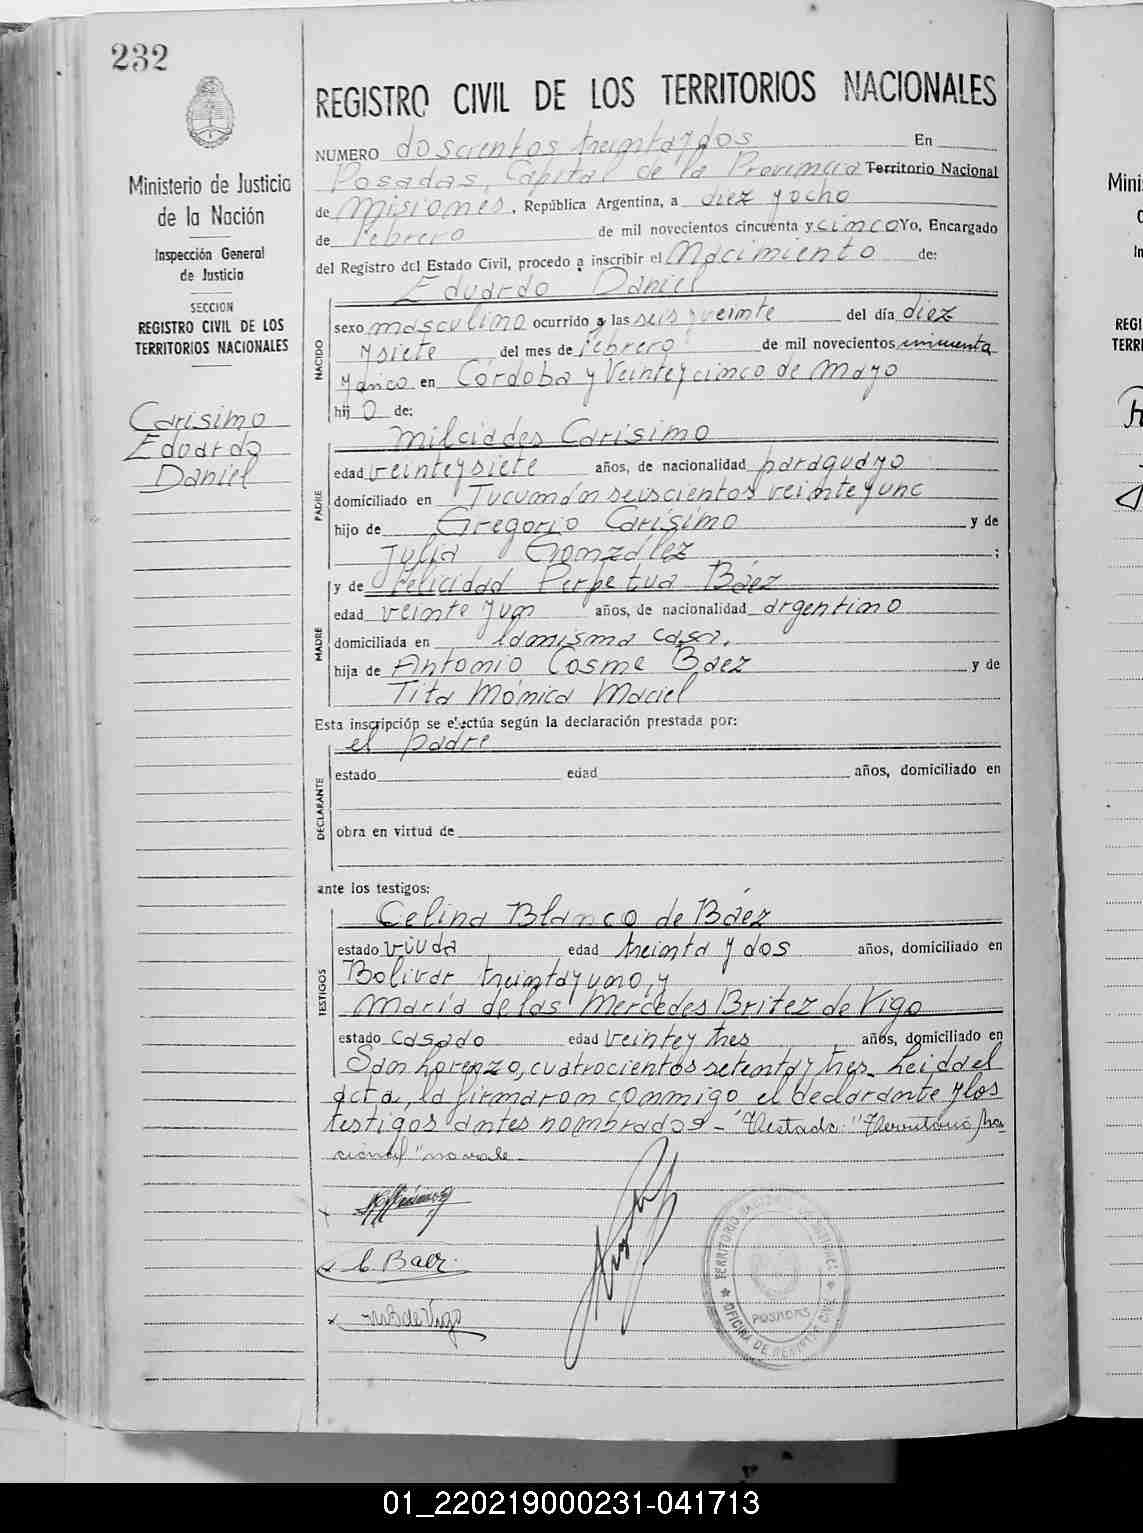 232
Ministerio de Justicia
de la Nación
Inspección General
de Justicia
SECCION
REGISTRO CIVIL DE LOS
TERRITORIOS NACIONALES
Carisimo
Eduardo
Daniel
REGISTRO CIVIL DE LOS TERRITORIOS NACIONALES
NUMERO doscientos treinta y dos En
Posadas, Capital de la Provincia Territorio Nacional
de Misiones, República Argentina, a diez y ocho
de febrero de mil novecientos cincuenta y cinco Yo, Encargado
del Registro del Estado Civil, procedo a inscribir el Nacimiento de:
Eduardo Daniel
NACIDO
sexo masculino ocurrido a las seis y veinte del día diez
y siete del mes de febrero de mil novecientos cincuenta
y cinco en Córdoba y Veinte y cinco de Mayo
hij o de:
Milciades Carisimo
PADRE
edad veinte y siete años, de nacionalidad paraguayo
domiciliado en Tucumán seiscientos veinte y uno
hijo de Gregorio Carísimo y de
Julia González ;
y de Felicidad Perpetua Báez
MADRE
edad veinte y un años, de nacionalidad argentino
domiciliada en la misma casa.
hija de Antonio Cosme Baez y de
Tita Mónica Maciel
Esta inscripción se efectúa según la declaración prestada por:
el padre
DECLARANTE
estado edad años, domiciliado en
obra en virtud de
ante los testigos:
Celina Blanco de Báez
TESTIGOS
estado viuda edad treinta y dos años, domiciliado en
Bolivar treinta y uno, y
María de las Mercedes Britez de Vigo
estado casado edad veinte y tres años, domiciliado en
San Lorenzo, cuatrocientos setenta y tres. Leida el
acta, la firmaron conmigo el declarante y los
testigos antes nombrados - Testado: "Territorio Na-
cional" no vale -
C. Baez.
MB de Vigo
TERRITORIO NACIONAL DE MISIONES
POSADAS
OFICINA DE REGISTRO CIVIL
Mini
REGI
TERR
01_220219000231-041713